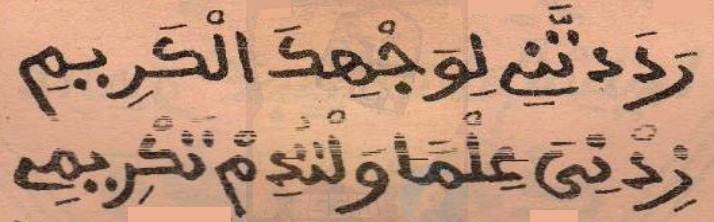 رَدَدتَّنِے لِوَجْهِكَ الْكَرِيمِ
زِدْنِىَ عِلْمًا وَلْتُدِمْ تَكْرِيمِے